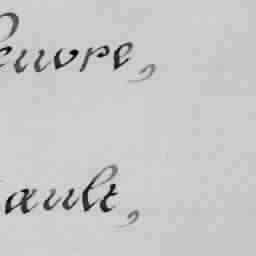 euvre,
ault,